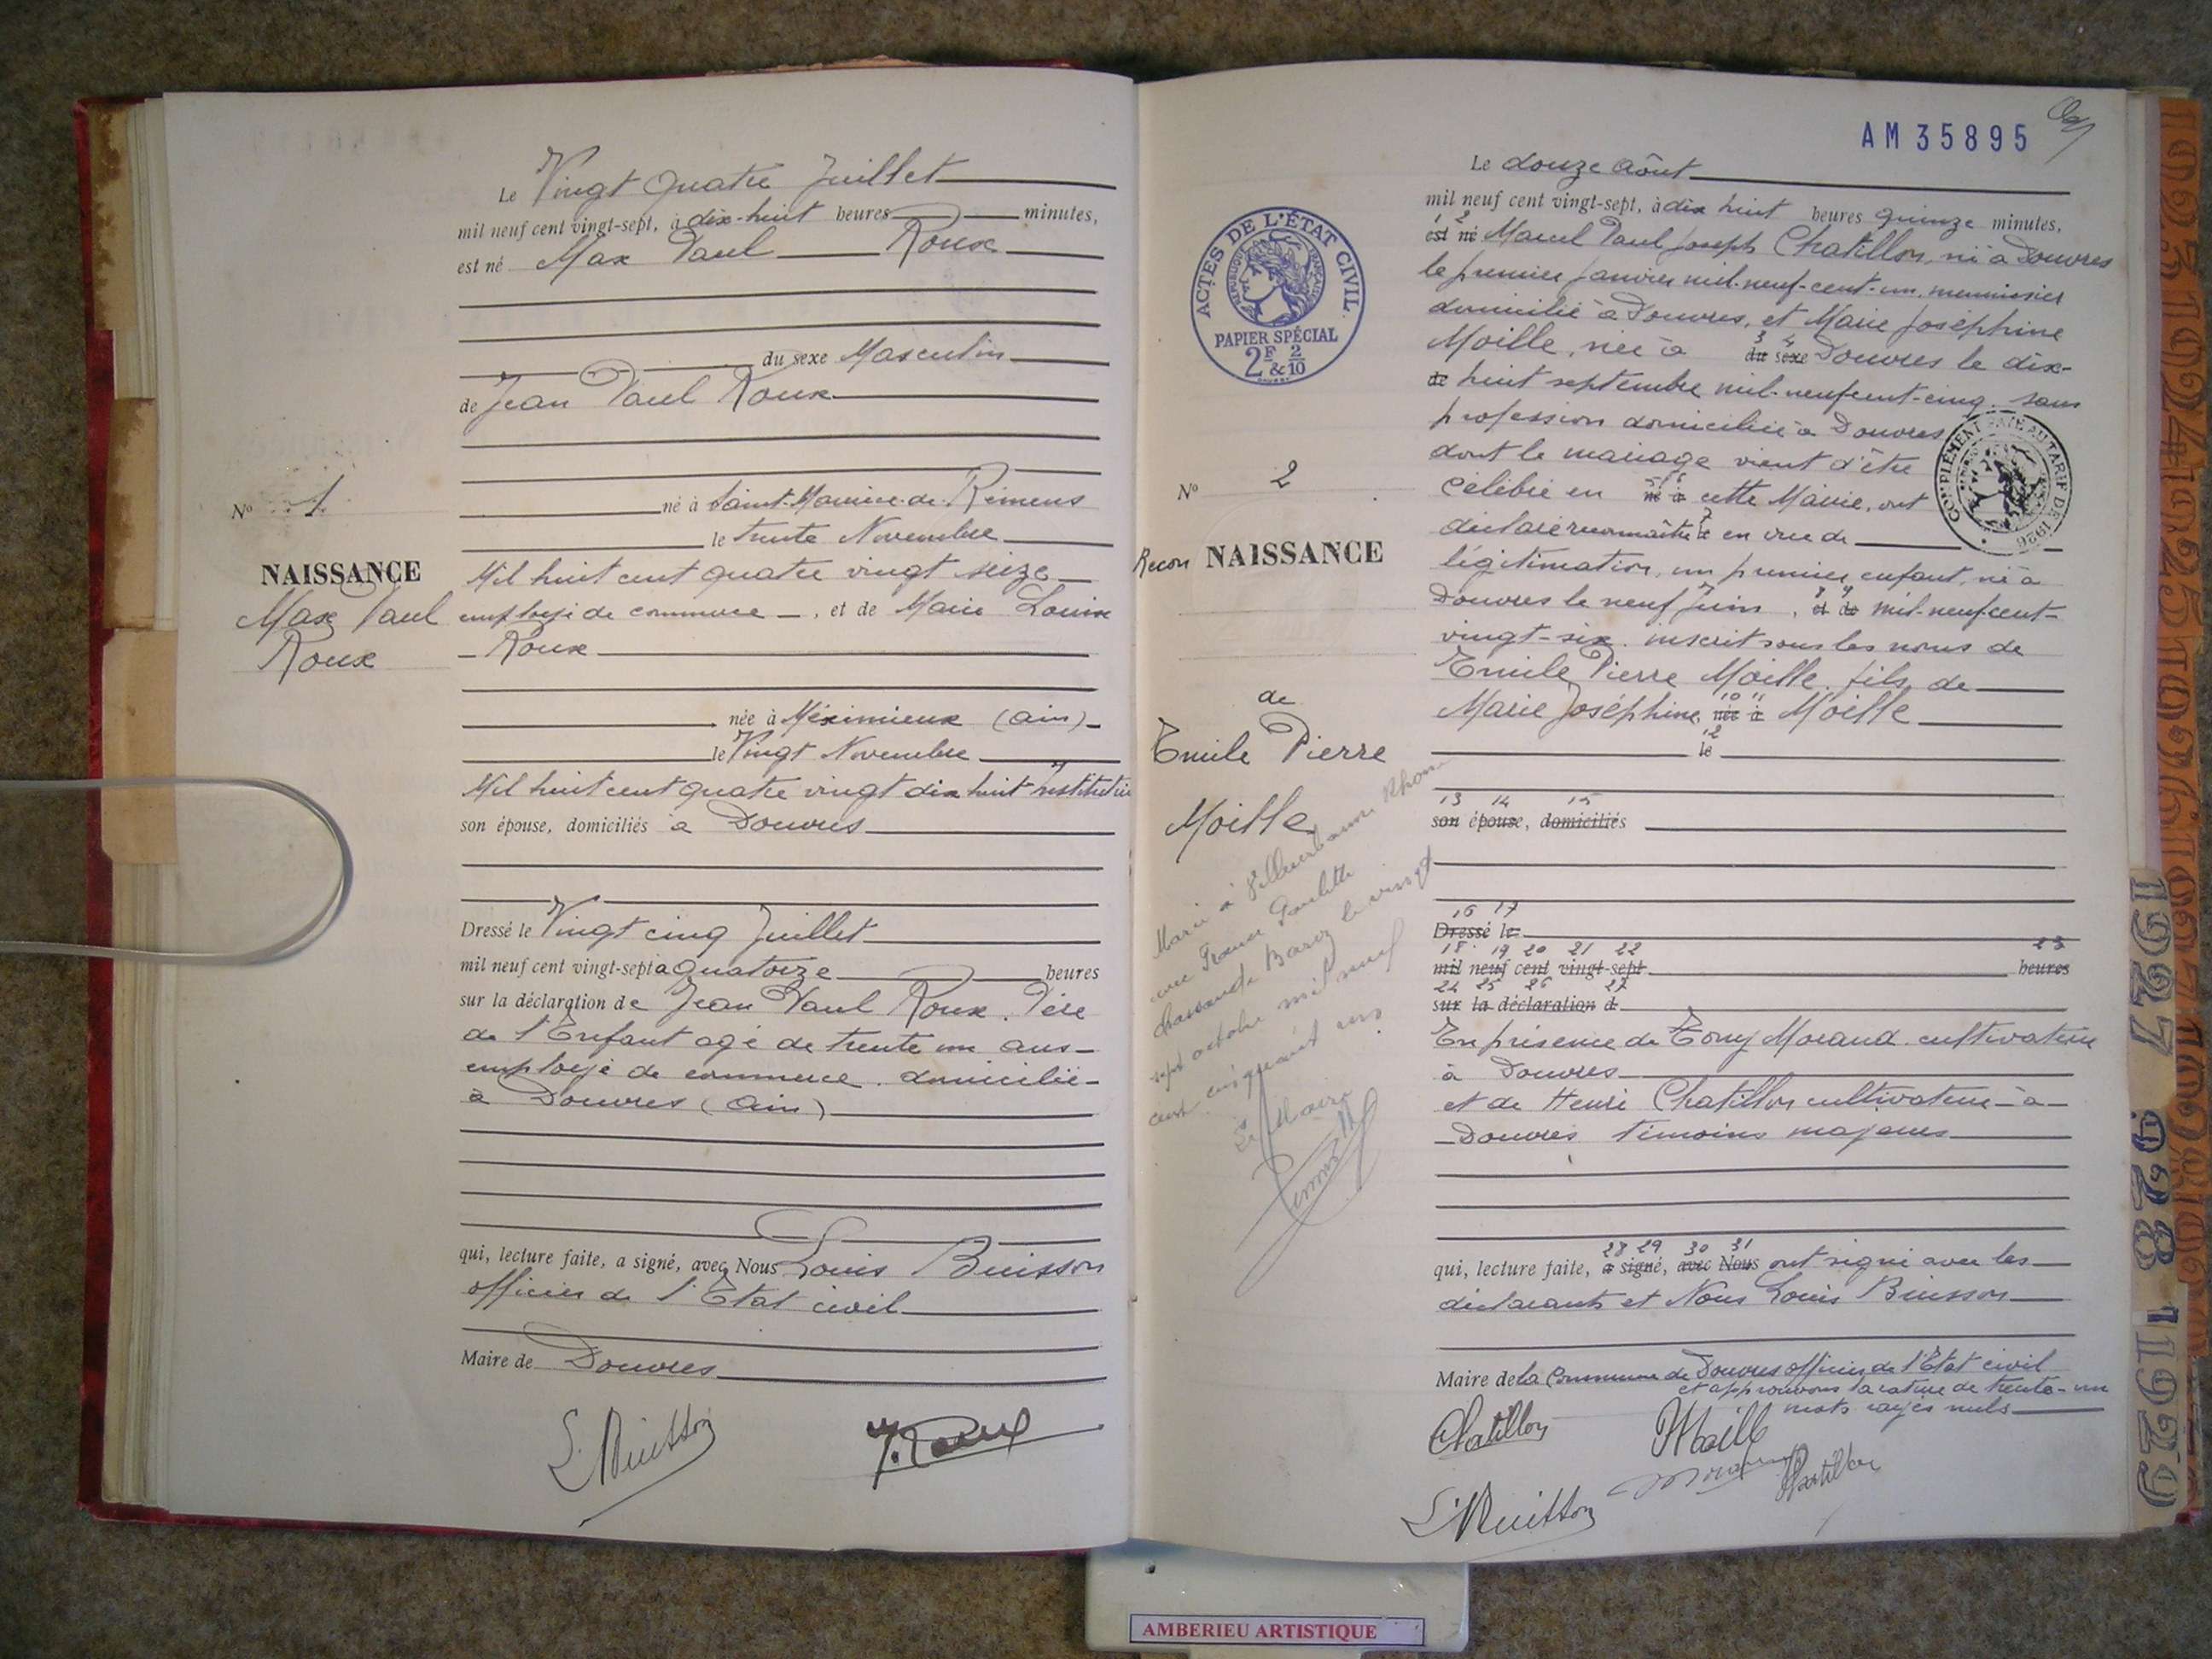 Le Vingt Quatre Juillet
mil neuf cent vingt-sept, à dix-huit heures minutes,
est né Max Paul Roux
du sexe Masculin
de Jean Paul Roux
né à Saint-Maurice-de-Rémens
le trente Novembre
Mil huit cent quatre vingt seize
employé de commerce, et de Marie Louise
Roux
née à Méximieux (Ain)
le Vingt Novembre
Mil huit cent quatre vingt dix huit institutrice
son épouse, domiciliés à Douvres
Dressé le Vingt cinq Juillet
mil neuf cent vingt-sept à Quatorze heures
sur la déclaration de Jean Paul Roux. Père
de l'Enfant agé de trente un ans
employé de commerce. domicilié
à Douvres (Ain)
qui, lecture faite, a signé, avec Nous Louis Buisson
officier de l'Etat civil
Maire de Douvres
L. Buisson
J. Roux
No 1
NAISSANCE
Max Paul
Roux
AM 35895
Le douze Août
mil neuf cent vingt-sept, à dix huit heures quinze minutes,
1 2
est né Marcel Paul Joseph Chatillon, né à Douvres
le premier Janvier mil-neuf-cent-un, menuisier
domicilié à Douvres, et Marie Joséphine
3 4
Moille, née à du sexe Douvres le dix-
de huit septembre mil-neuf-cent-cinq. sans
profession domiciliée à Douvres
dont le mariage vient d'être
5 6
célébré en né à cette Mairie, ont
7
déclaré reconnaître le en vue de
légitimation, un premier enfant, né à
8 9
Douvres le neuf Juin, et de mil-neuf-cent-
vingt-six. inscrit sous les noms de
Emile Pierre Moille. fils de
10 11
Marie Joséphine née à Moille
12
le
13 14 15
son épouse, domiciliés
16 17
Dressé le
18 19 20 21 22 23
mil neuf cent vingt-sept heures
24 25 26 27
sur la déclaration d
En présence de Tony Morand cultivateur
à Douvres
et de Henri Chatillon cultivateur à
Douvres témoins majeurs
28 29 30 31
qui, lecture faite, a signé, avec Nous ont signé avec les
déclarants et Nous Louis Buisson
Maire de la Commune de Douvres officier de l'Etat civil
et approuvons la rature de trente-un
mots rayés nuls
Chatillon
Moille
Morand
Chatillon
L. Buisson
ACTES DE L'ÉTAT CIVIL
RÉPUBLIQUE FRANÇAISE
PAPIER SPÉCIAL
2F & 2/10
COMPLÉMENT PAYÉ AU TARIF DE 1926
No 2
Recon NAISSANCE
de
Emile Pierre
Moille
Marié à Villeurbanne Rhône
avec France Paulette
le vingt
sept octobre mil neuf
cent cinquante un
Le Maire
1927 1928 1929
AMBERIEU ARTISTIQUE